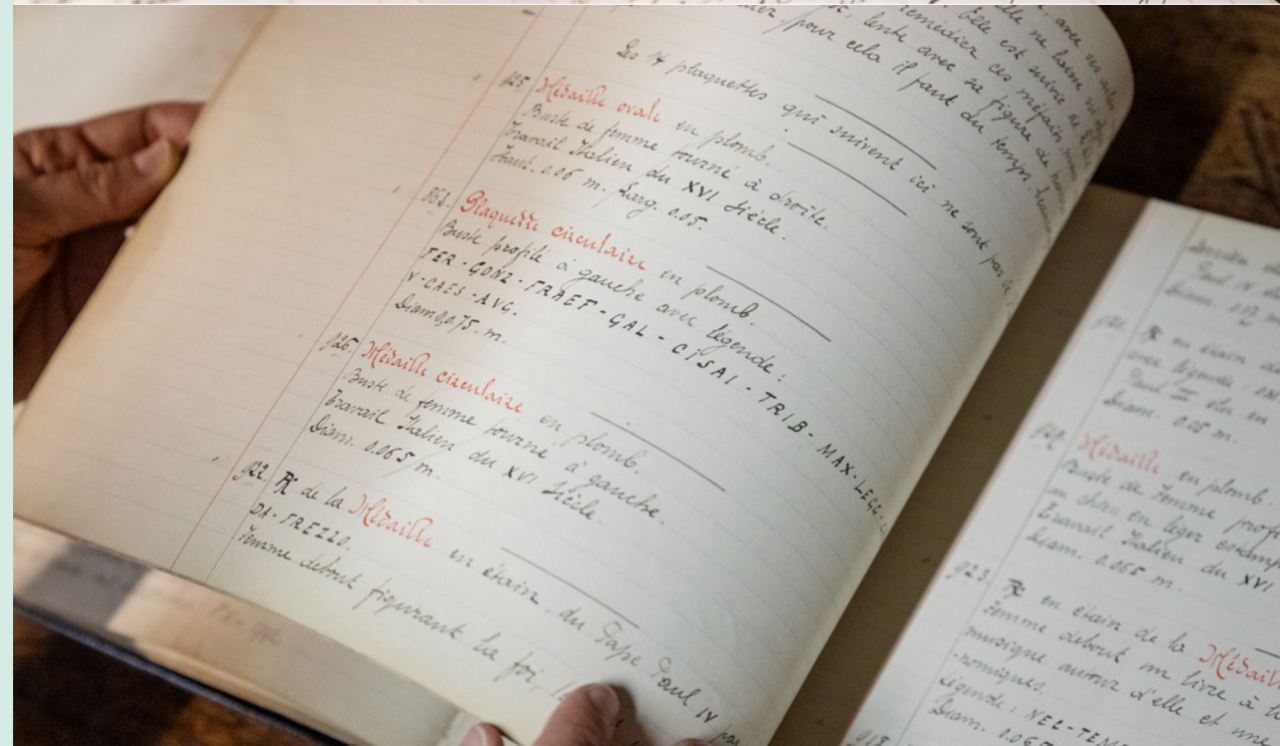 remédier ces méfaits
pour cela il faut du temps.
Les 14 plaquettes qui suivent ici ne sont pas
925 Médaille ovale en plomb.
Buste de femme tourné à droite.
Travail Italien du XVI Siècle.
Haut. 0.06 m. Larg. 0.05.
863. Plaquette circulaire en plomb.
Buste profilé à gauche avec légende:
FER-GONZ-PRAEF-GAL-CISAL-TRIB-MAX-LEGG-
V-CAES-AVG.
Diam 0,0,75. m.
926. Médaille circulaire en plomb.
Buste de femme tourné à gauche.
Travail Italien du XVI Siècle.
Diam. 0.065 m.
922. R de la Médaille en étain, du Pape Paul IV par
DA-TREZZO.
Femme debout figurant la foi,
Paul IV
Diam.
921. R en étain
avec légende
Paul III élu en
Diam. 0.05 m.
920. Médaille en plomb.
Buste de Femme
un chien en léger
Travail Italien du XVI
Diam. 0.065 m.
923. R en étain de la Médaille
Femme debout un livre à
musique autour d'elle et une
-nomiques.
Légende: NEL-
Diam. 0.067
918.